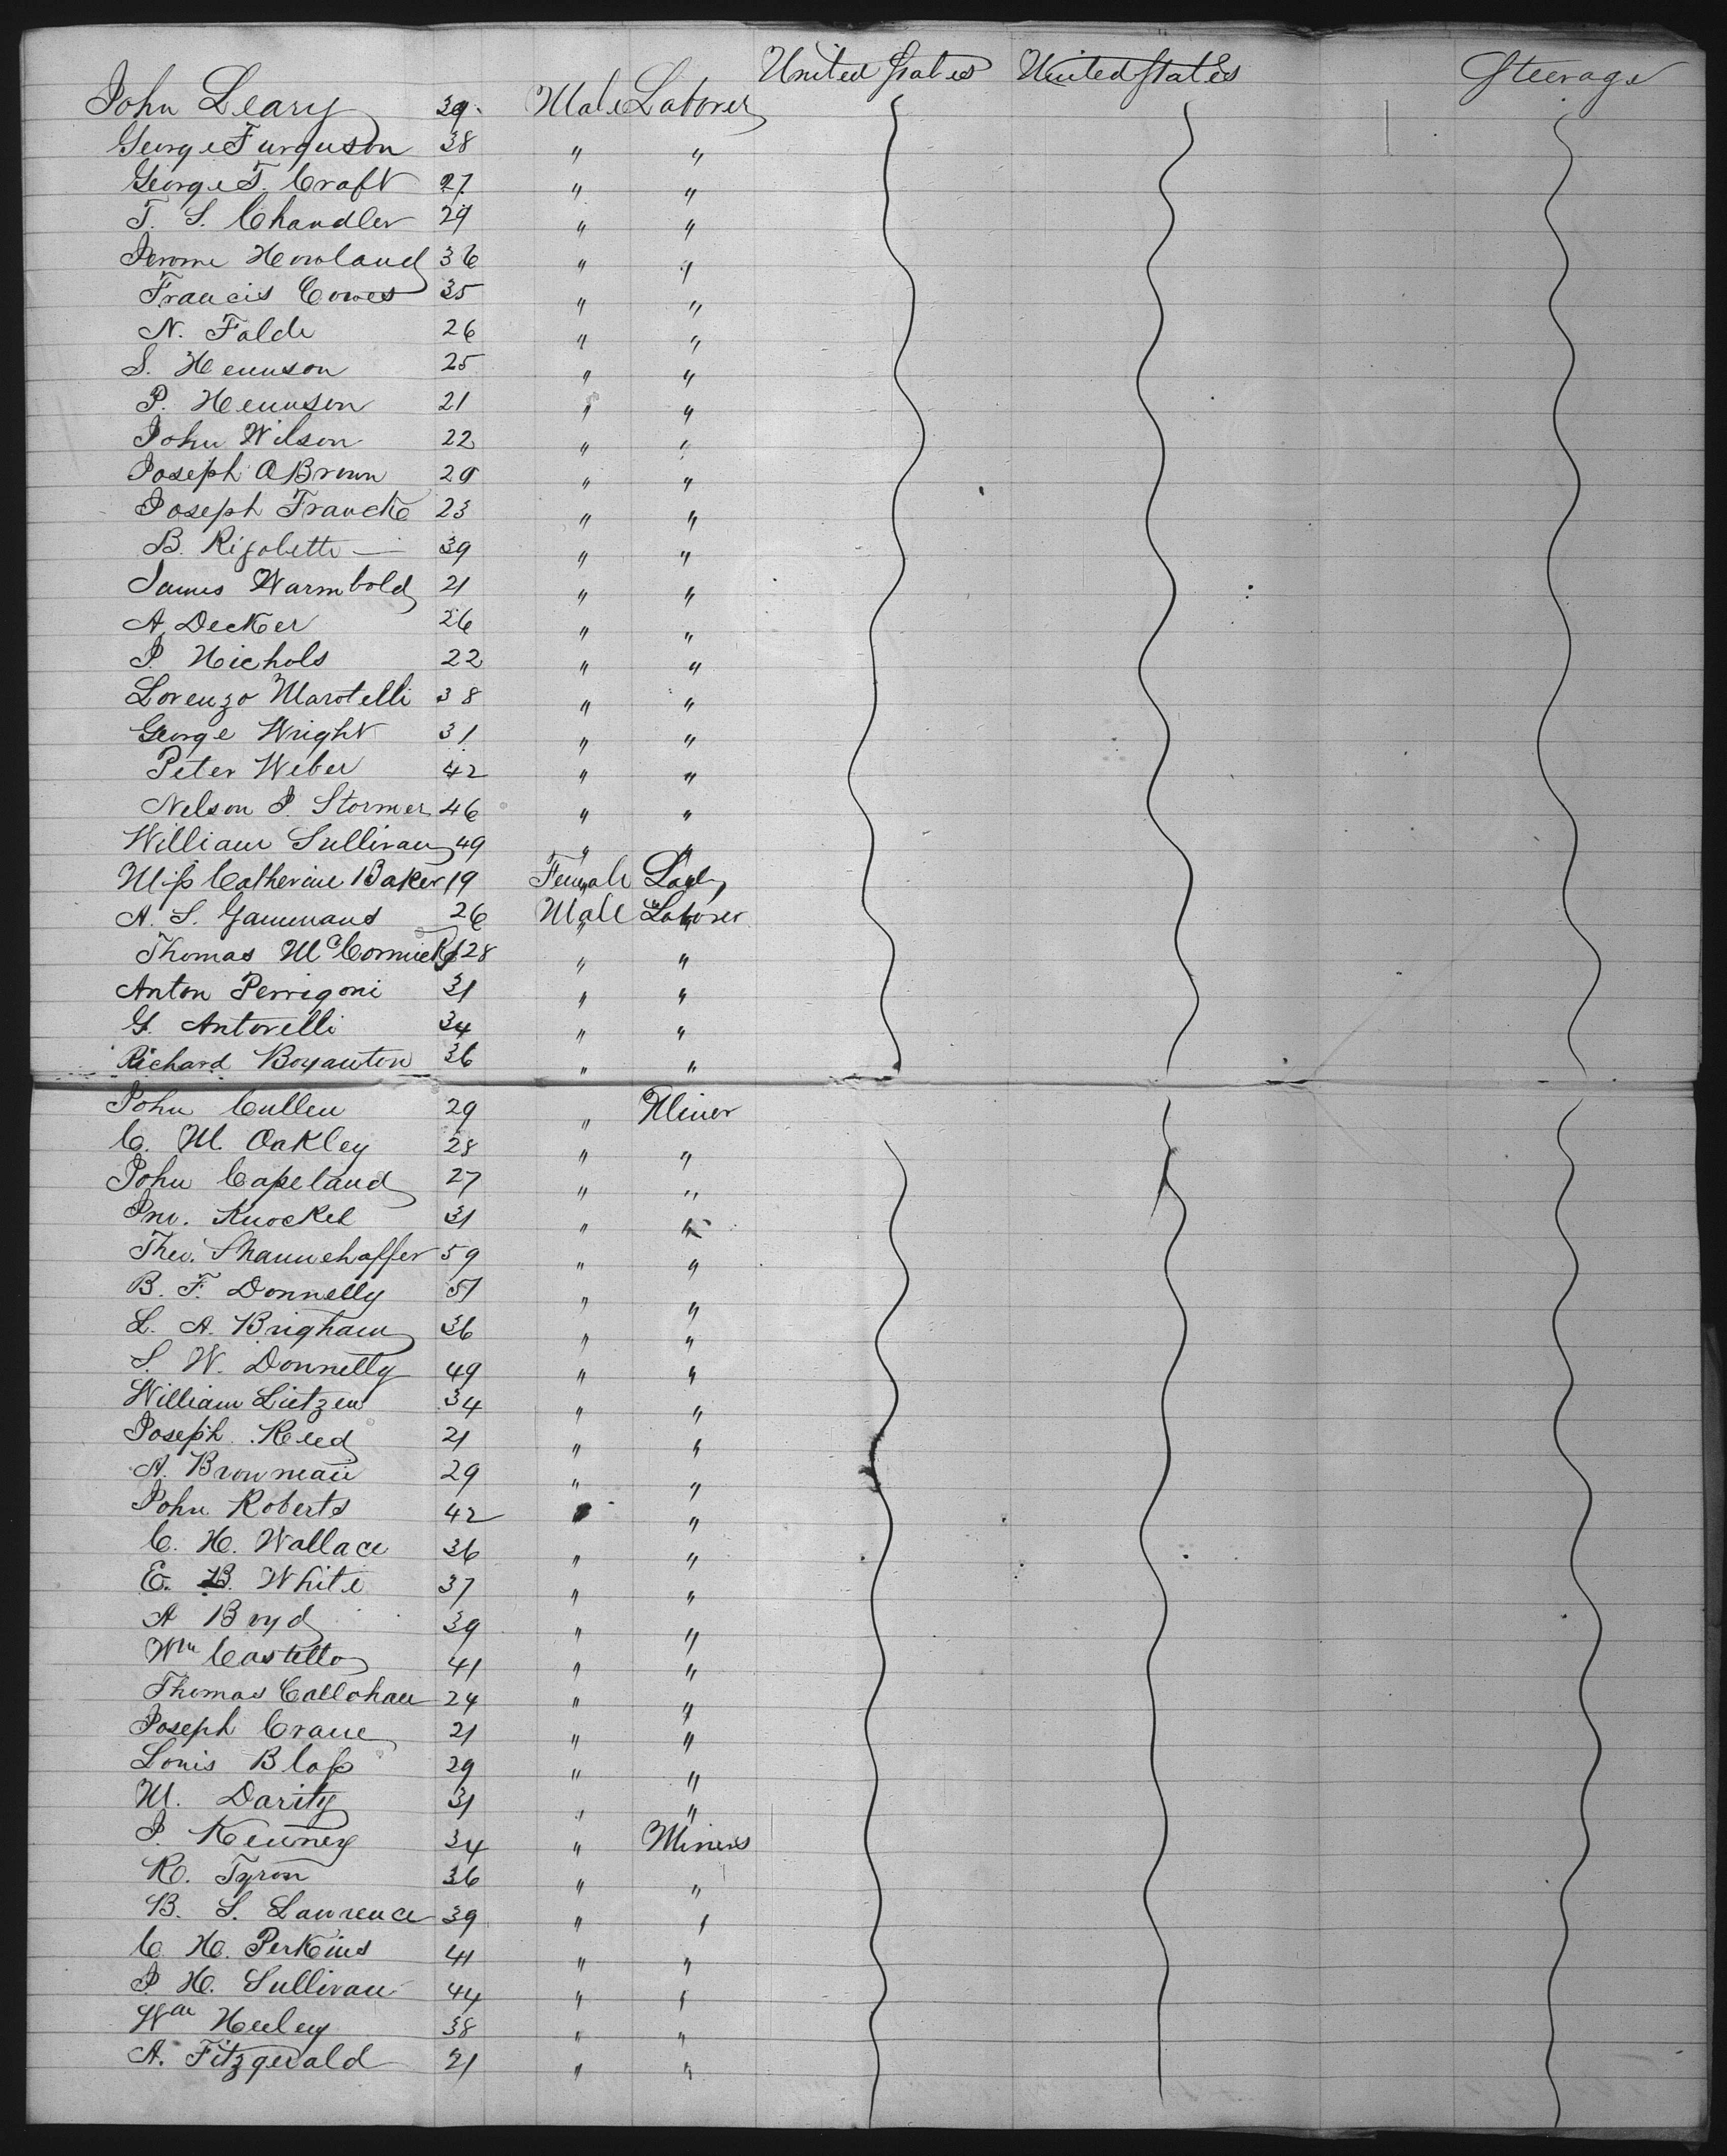 John Leary 39 Male Laborer United States United States Steerage
George Furguson 38 " "
George T. Craft 27 " "
T. S. Chandler 29 " "
Jerome Howland 36 " "
Francis Cowes 35 " "
N. Falde 26 " "
S. Hennson 25 " "
P. Hennson 21 " "
John Wilson 22 " "
Joseph A Brown 29 " "
Joseph Francke 23 " "
B. Rigolette 39 " "
James Warmbold 21 " "
A. Decker 26 " "
J. Nichols 22 " "
Lorenzo Marotelli 38 " "
George Wright 31 " "
Peter Weber 42 " "
Nelson J. Stormer 46 " "
William Sullivan 49 " "
Miss Catherine Baker 19 Female Lady
A. S. Gammans 26 Male Laborer
Thomas McCormick 28 " "
Anton Perrigoni 31 " "
G. Antorelli 34 " "
Richard Boyanton 36 " "
John Cullen 29 " Miner
C. M. Oakley 28 " "
John Copeland 27 " "
Jno. Knockel 31 " "
Theo. Shannehaffer 59 " "
B. F. Donnelly 51 " "
L. A. Brigham 36 " "
S. W. Donnelly 49 " "
William Lietzen 34 " "
Joseph Reed 21 " "
A. Browman 29 " "
John Roberts 42 " "
C. H. Wallace 36 " "
E. B. White 37 " "
A Boyd 39 " "
Wm Castello 41 " "
Thomas Callohan 24 " "
Joseph Crane 21 " "
Louis Blass 29 " "
M. Darity 31 " "
J. Kenney 34 " Miners
R. Tyron 36 " "
B. S. Lawrence 39 " "
C. H. Perkins 41 " "
J. H. Sullivan 44 " "
Wm Heeley 38 " "
A. Fitzgerald 21 " "